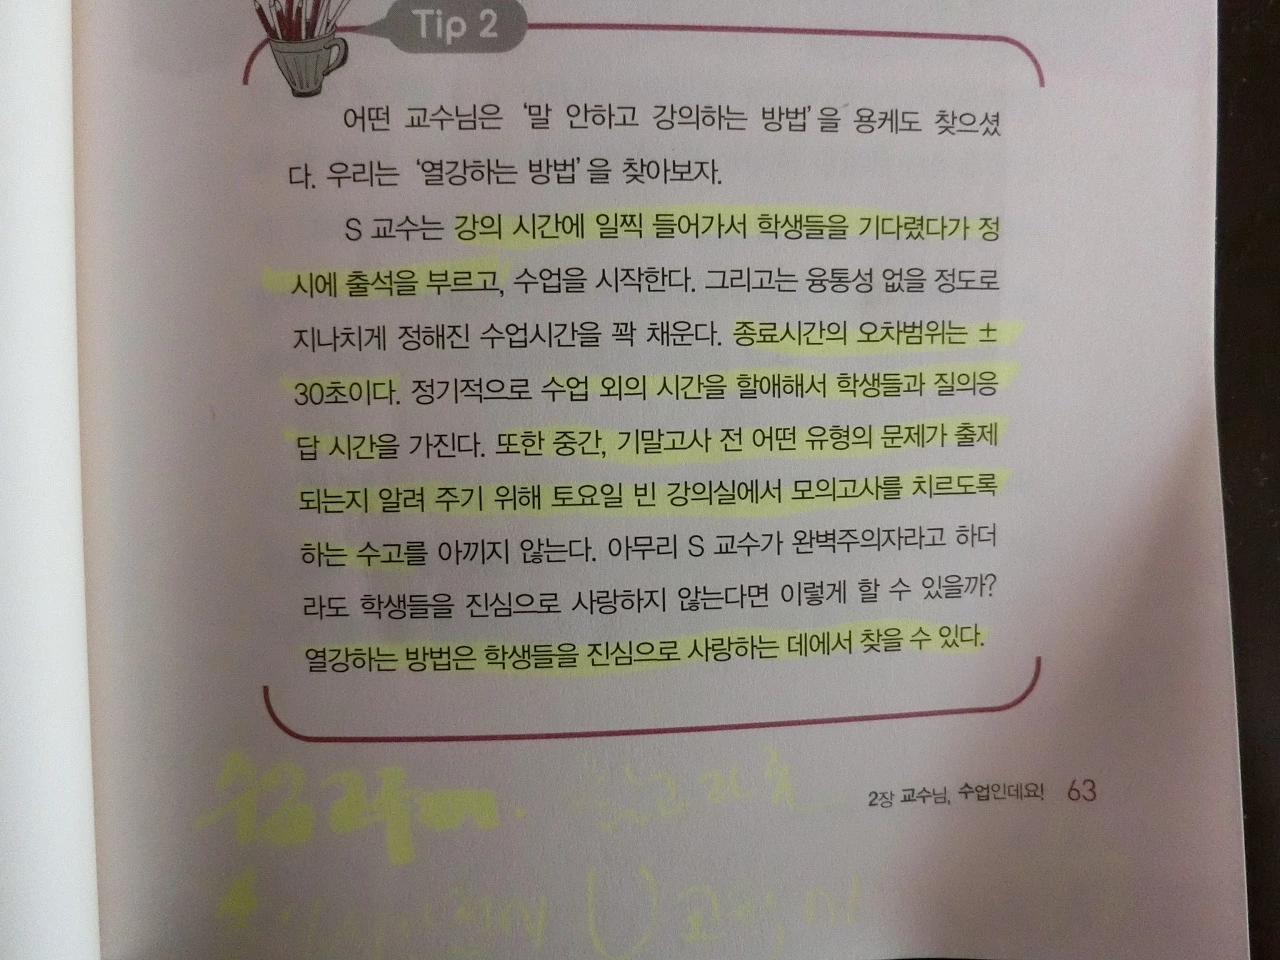 Tip 2
어떤 교수님은 ‘말 안하고 강의하는 방법’을 용케도 찾으셨
다. 우리는 ‘열강하는 방법’을 찾아보자.
S 교수는 강의 시간에 일찍 들어가서 학생들을 기다렸다가 정
시에 출석을 부르고, 수업을 시작한다. 그리고는 융통성 없을 정도로
지나치게 정해진 수업시간을 꽉 채운다. 종료시간의 오차범위는 ±
30초이다. 정기적으로 수업 외의 시간을 할애해서 학생들과 질의응
답 시간을 가진다. 또한 중간, 기말고사 전 어떤 유형의 문제가 출제
되는지 알려 주기 위해 토요일 빈 강의실에서 모의고사를 치르도록
하는 수고를 아끼지 않는다. 아무리 S 교수가 완벽주의자라고 하더
라도 학생들을 진심으로 사랑하지 않는다면 이렇게 할 수 있을까?
열강하는 방법은 학생들을 진심으로 사랑하는 데에서 찾을 수 있다.
2장 교수님, 수업인데요! 63